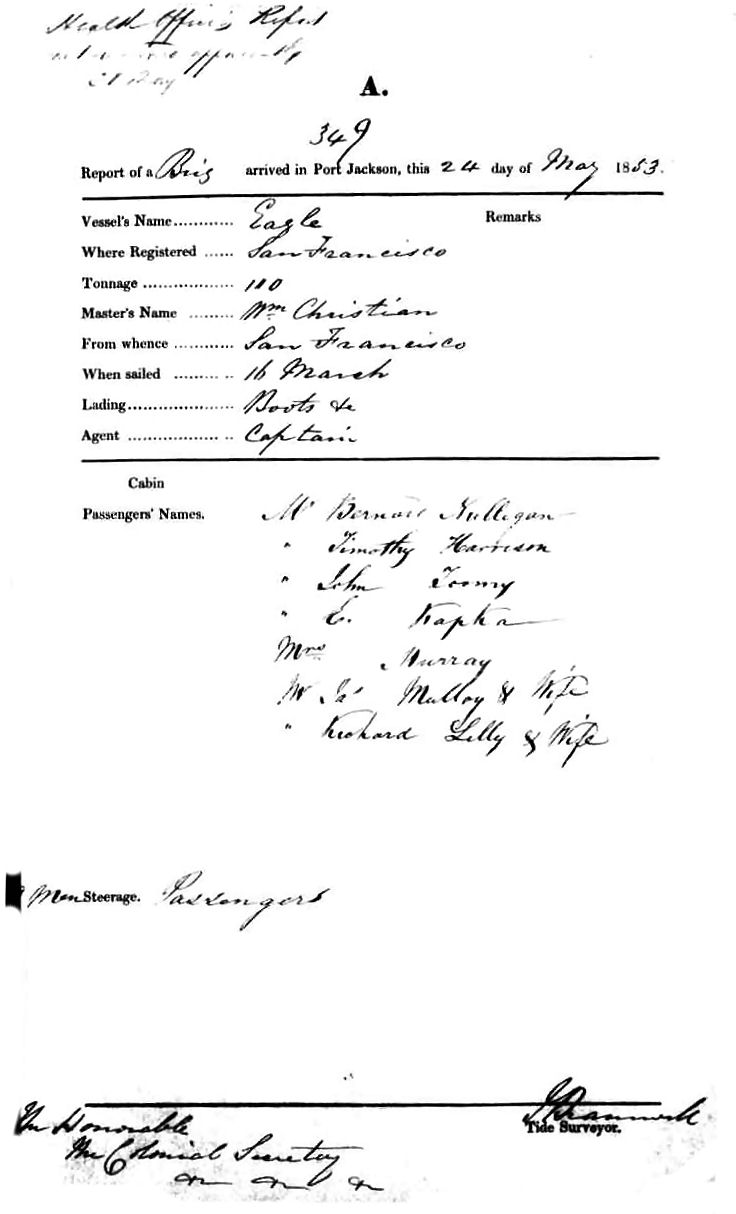 Health Officer's Report
A.
349
Report of a Brig arrived in Port Jackson, this 24 day of May 1853.
Vessel's Name............ Eagle Remarks
Where Registered ...... San Francisco
Tonnage .................. 110
Master's Name ......... Wm Christian
From whence ............ San Francisco
When sailed ......... .. 16 March
Lading..................... Boots &c
Agent .................. .. Captain
Cabin
Passengers' Names. Mr Bernard Mulligan
" Timothy Harrison
" John Toomy
" Kapka
Mrs Murray
Mr Jas Mulloy & Wife
" Richard Lilly & Wife
Men Steerage. Passengers
Tide Surveyor.
The Honorable
The Colonial Secretary